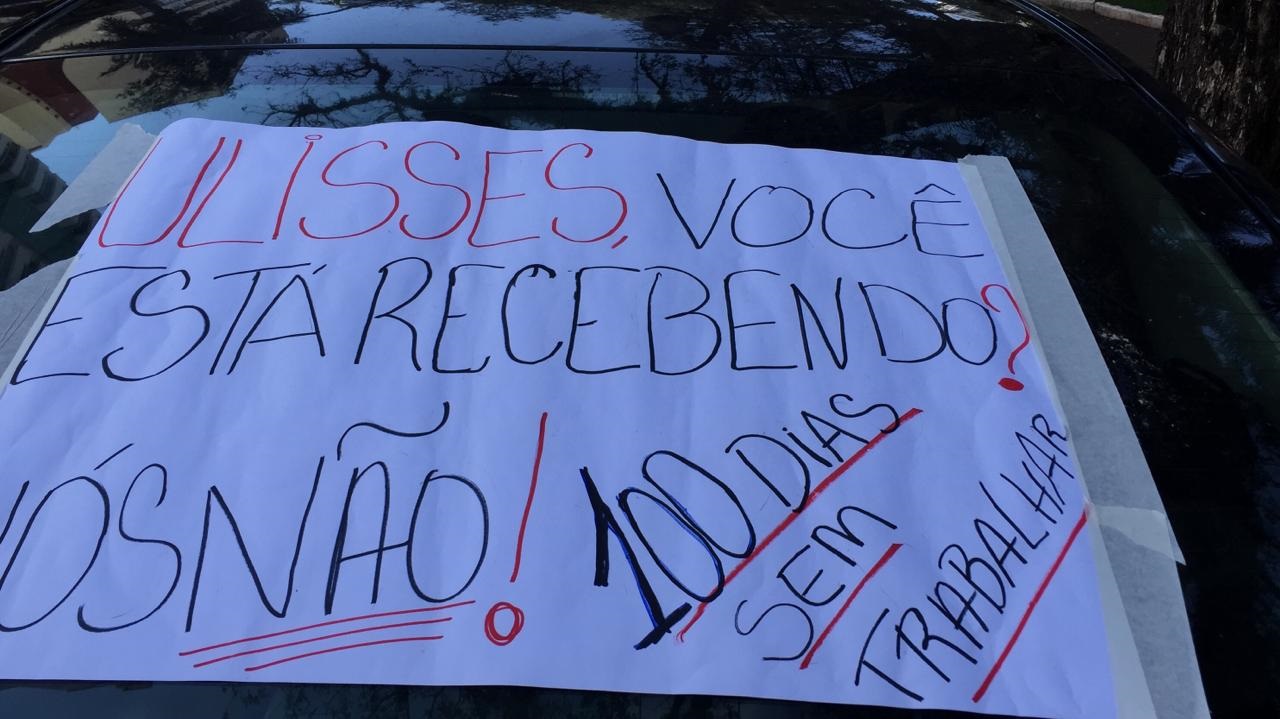 ULISSES, VOCÊ
ESTÁ RECEBENDO?
NÓS NÃO!
100 DIAS
SEM
TRABALHAR